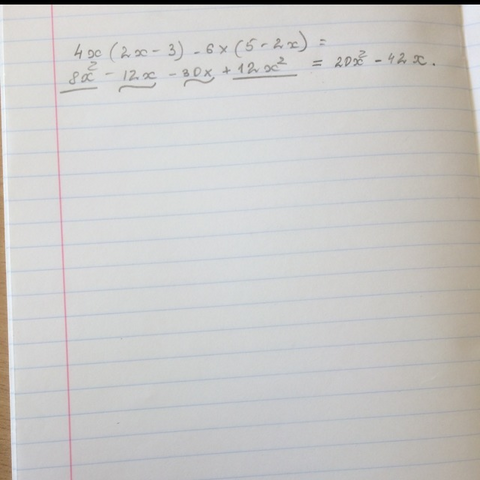 4x(2x-3)-6x(5-2x)=
8x²-12x-30x+12x² = 20x²-42x.